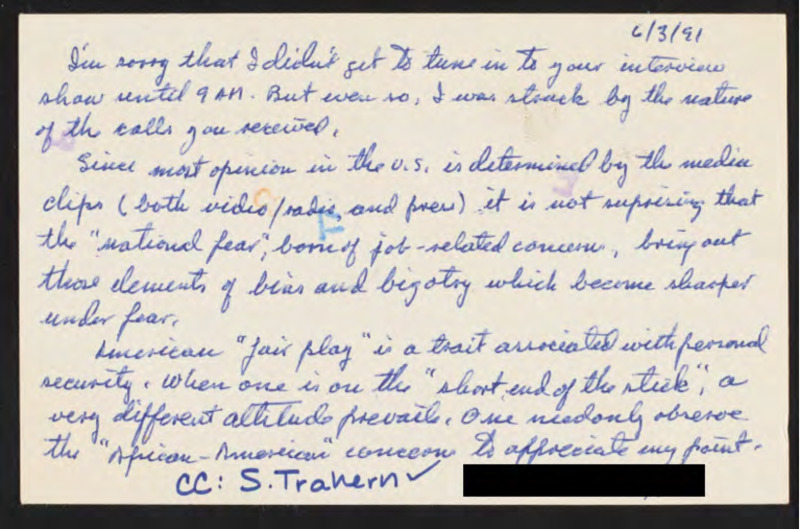 6/3/91
I'm sorry that I didn't get to tune in to your interview
show until 9 AM. But even so, I was struck by the nature
of the calls you received.
Since most opinion in the U.S. is determined by the media
clips (both video/radio and press) it is not suprising that
the "national fear", born of job-related concern, bring out
those elements of bias and bigotry which become sharper
under fear.
American "fair play" is a trait associated with personal
security. When one is on the "short end of the stick", a
very different attitude prevails. One need only observe
the "African-American" concern to appreciate my point.
CC: S. Trahern ✓